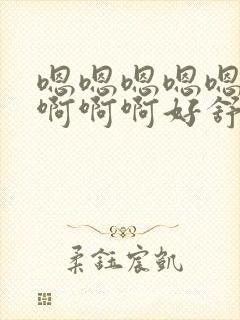 嗯嗯嗯嗯嗯
啊啊啊好舒
柔钰宸凯